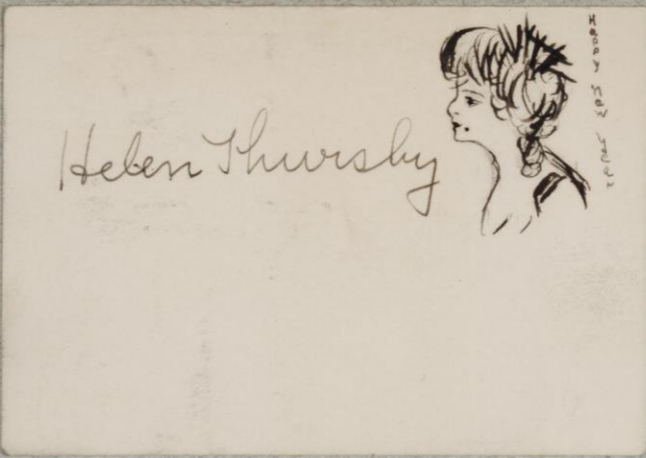 Helen Thursby
Happy New Year